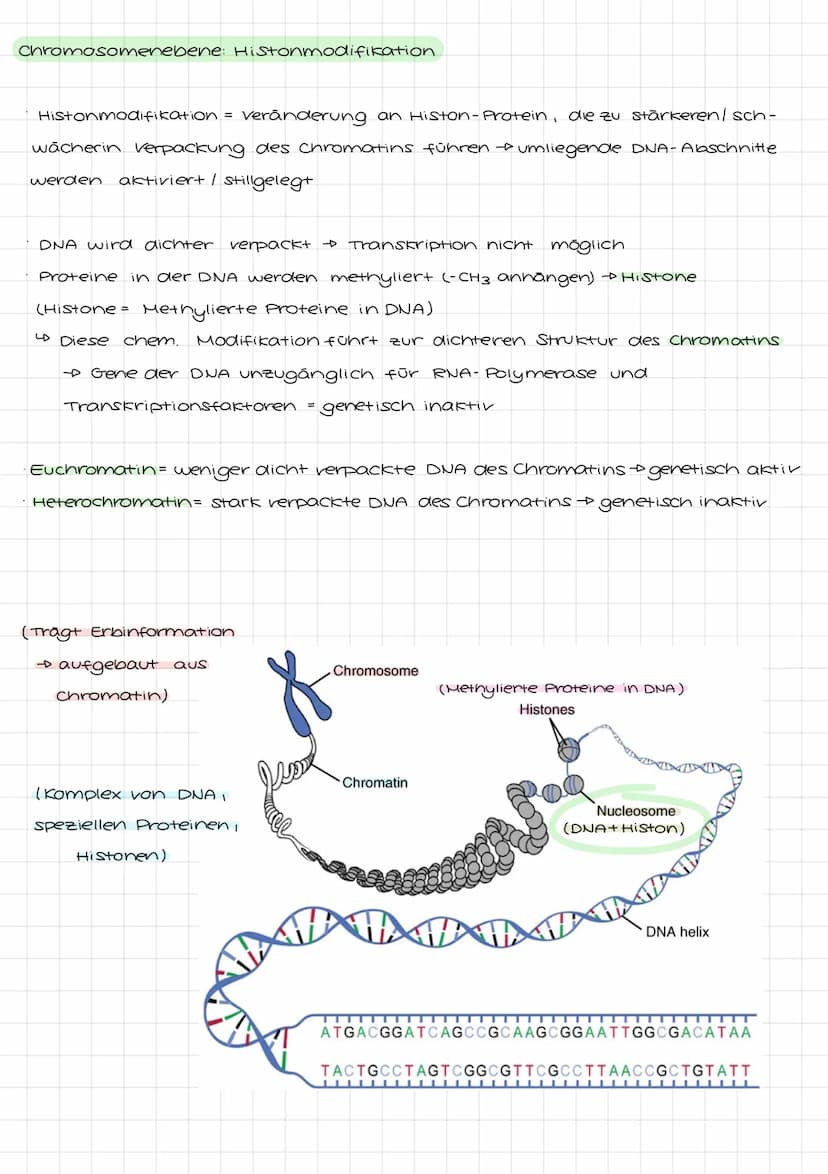 Chromosomenebene: Histonmodifikation
· Histonmodifikation = Veränderung an Histon-Protein, die zu stärkeren/ sch-
wächerin Verpackung des Chromatins führen → umliegende DNA-Abschnitte
werden aktiviert / stillgelegt
· DNA wird dichter verpackt → Transkription nicht möglich
· Proteine in der DNA werden methyliert (-CH3 anhängen) → Histone
(Histone = Methylierte Proteine in DNA)
↳ Diese chem. Modifikation führt zur dichteren Struktur des Chromatins
→ Gene der DNA unzugänglich für RNA-Polymerase und
Transkriptionsfaktoren = genetisch inaktiv
· Euchromatin = weniger dicht verpackte DNA des Chromatins → genetisch aktiv
· Heterochromatin = stark verpackte DNA des Chromatins → genetisch inaktiv
(Trägt Erbinformation
→ aufgebaut aus
Chromatin)
Chromosome
(Methylierte Proteine in DNA)
Histones
Chromatin
(Komplex von DNA,
speziellen Proteinen,
Histonen)
Nucleosome
(DNA + Histon)
DNA helix
ATGACGGATCAGCCGCAAGCGGAATTGGCGACATAA
TACTGCCTAGTCGGCGTTCGCCTTAACCGCTGTATT